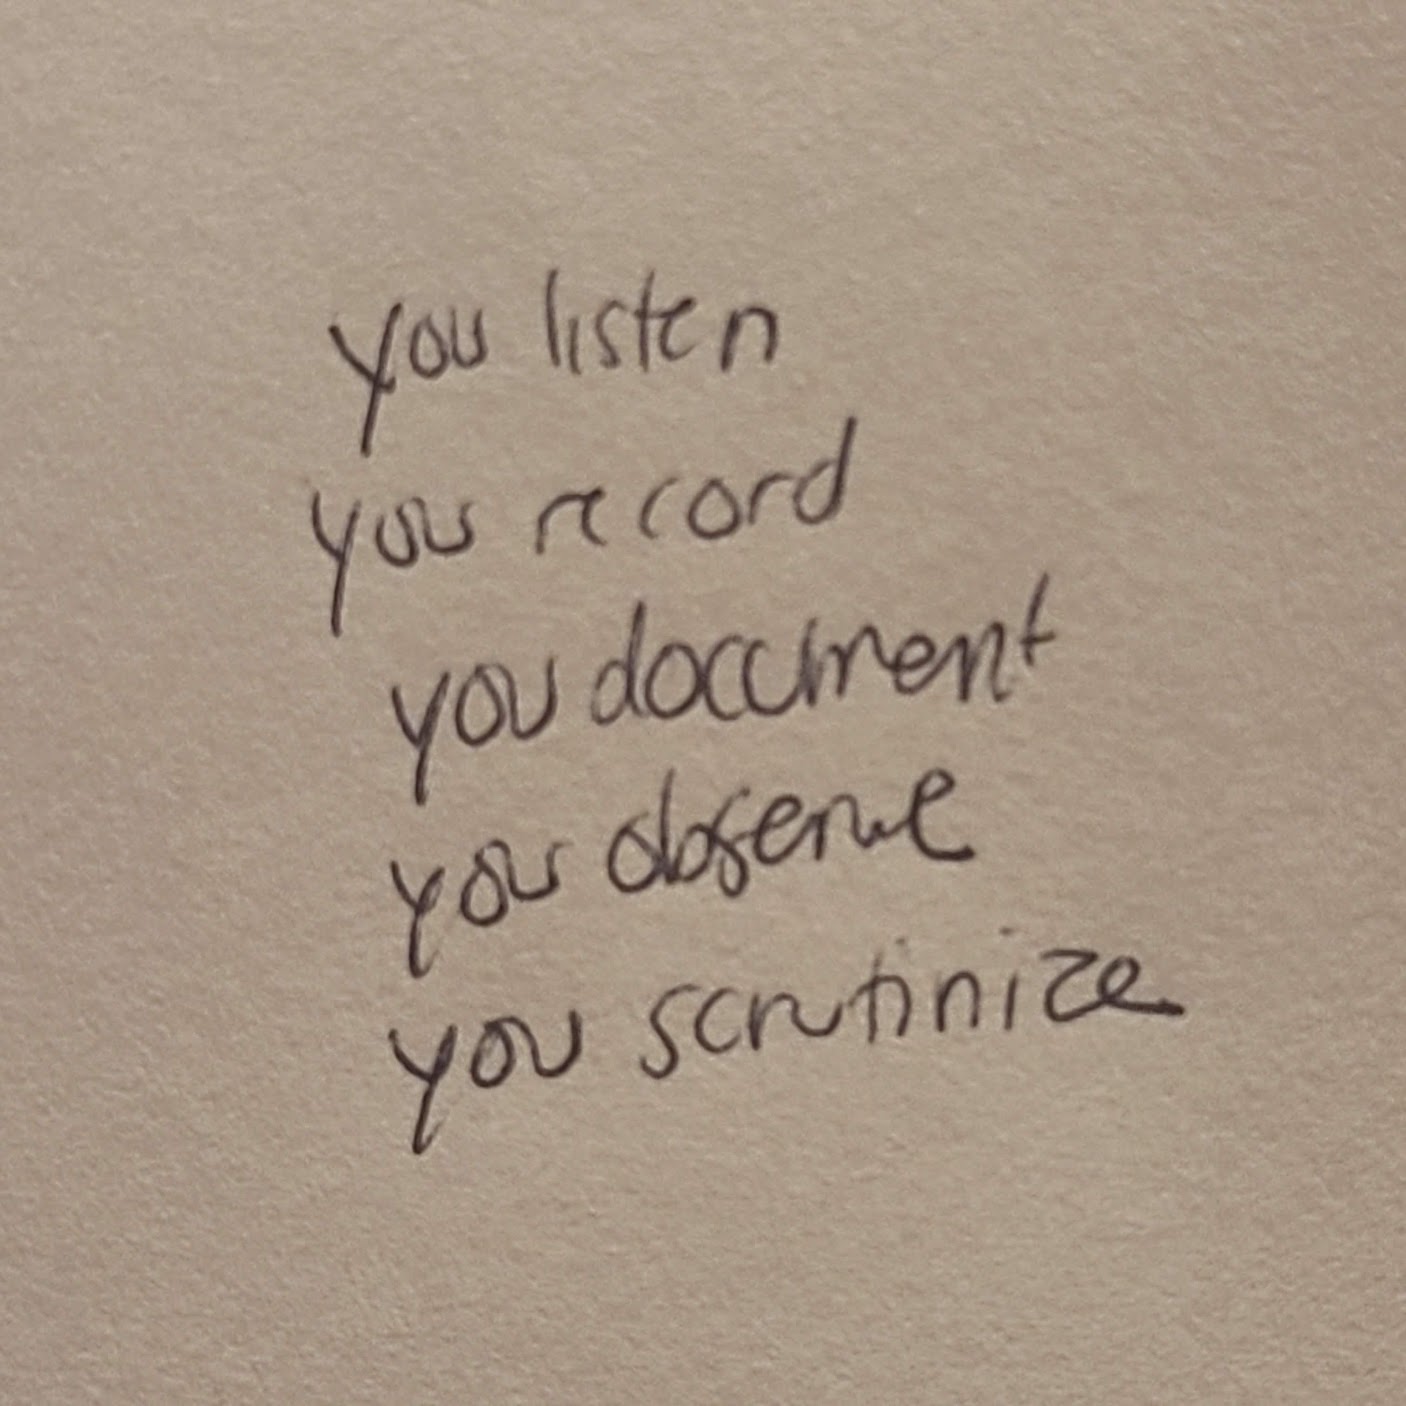 you listen
you record
you document
you observe
you scrutinize